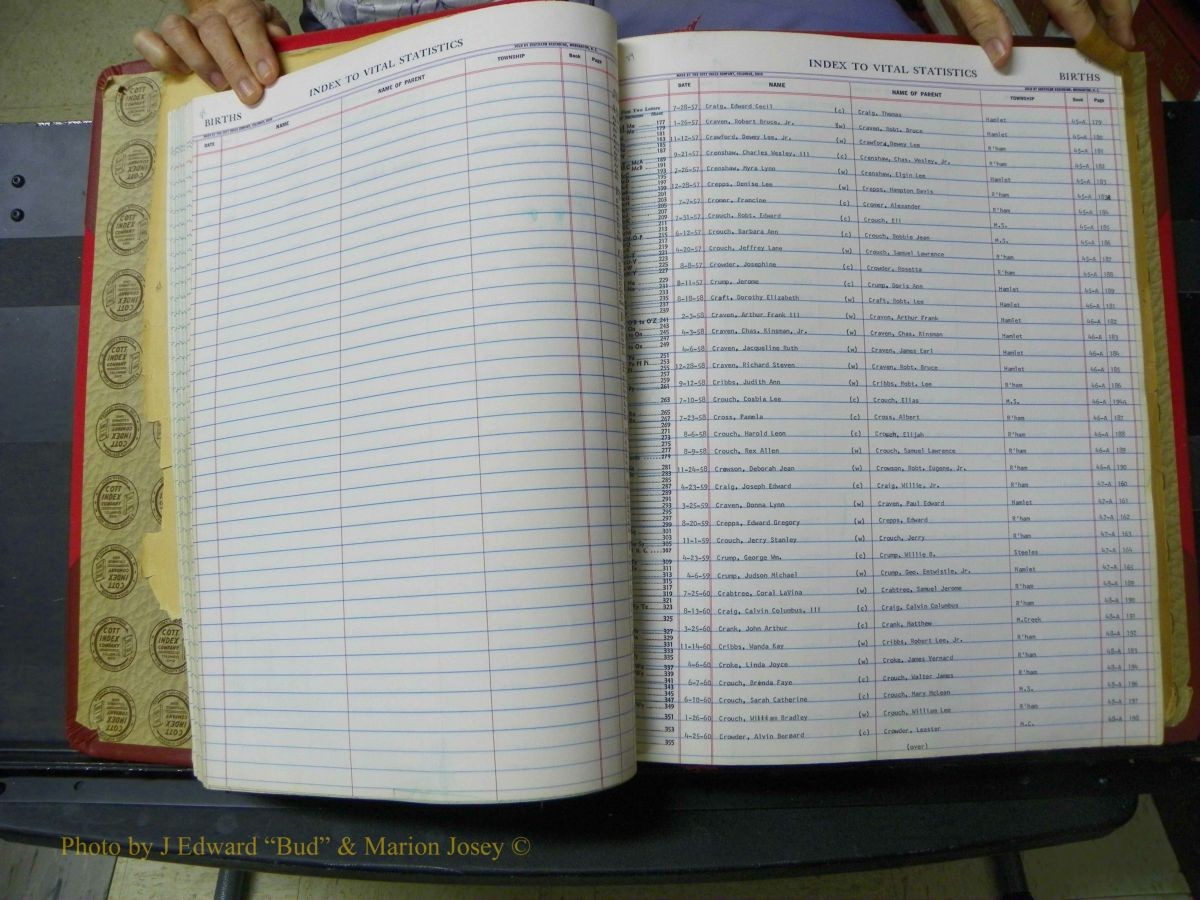 INDEX TO VITAL STATISTICS
BIRTHS
DATE NAME NAME OF PARENT TOWNSHIP Book Page
COTT INDEX COMPANY
INDEX TO VITAL STATISTICS BIRTHS
DATE NAME NAME OF PARENT TOWNSHIP Book Page
7-28-57 Craig, Edward Cecil (c) Craig, Thomas Hamlet 45-A 179
1-26-57 Craven, Robert Bruce, Jr. (w) Craven, Robt. Bruce Hamlet 45-A 180
11-12-57 Crawford, Dewey Lee, Jr. (w) Crawford, Dewey Lee R'ham 45-A 181
9-21-57 Crenshaw, Charles Wesley, III (c) Crenshaw, Chas. Wesley, Jr. R'ham 45-A 182
7-26-57 Crenshaw, Myra Lynn (w) Crenshaw, Elgin Lee Hamlet 45-A 183
12-28-57 Crepps, Denise Lee (w) Crepps, Hampton Davis R'ham 45-A
7-7-57 Cromer, Francine (c) Cromer, Alexander R'ham 45-A 184
7-31-57 Crouch, Robt. Edward (c) Crouch, Eli M.S. 45-A 185
6-12-57 Crouch, Barbara Ann (c) Crouch, Bobbie Jean M.S. 45-A 186
4-20-57 Crouch, Jeffrey Lane (w) Crouch, Samuel Lawrence R'ham 45-A 187
8-8-57 Crowder, Josephine (c) Crowder, Rosetta R'ham 45-A 188
8-11-57 Crump, Jerome (c) Crump, Doris Ann Hamlet 45-A 189
8-18-58 Craft, Dorothy Elizabeth (w) Craft, Robt. Lee Hamlet 46-A 181
2-3-58 Craven, Arthur Frank III (w) Craven, Arthur Frank Hamlet 46-A 182
4-3-58 Craven, Chas. Kinsman, Jr. (w) Craven, Chas. Kinsman Hamlet 46-A 183
4-6-58 Craven, Jacqueline Ruth (w) Craven, James Earl Hamlet 46-A 184
12-28-58 Craven, Richard Steven (w) Craven, Robt. Bruce Hamlet 46-A 185
9-12-58 Cribbs, Judith Ann (w) Cribbs, Robt. Lee R'ham 46-A 186
7-10-58 Crouch, Cosbia Lee (c) Crouch, Elias M.S. 46-A 194A
7-23-58 Cross, Pamela (c) Cross, Albert R'ham 46-A 187
8-6-58 Crouch, Harold Leon (c) Crouch, Elijah R'ham 46-A 188
8-9-58 Crouch, Rex Allen (w) Crouch, Samuel Lawrence R'ham 46-A 189
11-24-58 Crowson, Deborah Jean (w) Crowson, Robt. Eugene, Jr. R'ham 46-A 190
4-23-59 Craig, Joseph Edward (c) Craig, Willie, Jr. R'ham 47-A 160
3-25-59 Craven, Donna Lynn (w) Craven, Paul Edward Hamlet 47-A 161
8-20-59 Crepps, Edward Gregory (w) Crepps, Edward R'ham 47-A 162
11-1-59 Crouch, Jerry Stanley (w) Crouch, Jerry R'ham 47-A 163
4-23-59 Crump, George Wm. (c) Crump, Willie B. Steeles 47-A 164
4-6-59 Crump, Judson Michael (w) Crump, Geo. Entwistle, Jr. Hamlet 47-A 165
7-25-60 Crabtree, Coral LaVina (w) Crabtree, Samuel Jerome R'ham 48-A 189
8-13-60 Craig, Calvin Columbus, III (c) Craig, Calvin Columbus R'ham 48-A 190
3-25-60 Crank, John Arthur (c) Crank, Matthew M.Creek 48-A 191
11-14-60 Cribbs, Wanda Kay (w) Cribbs, Robert Lee, Jr. R'ham 48-A 192
4-6-60 Croke, Linda Joyce (w) Croke, James Vernard R'ham 48-A 183
6-7-60 Crouch, Brenda Faye (c) Crouch, Walter James R'ham 48-A 184
6-10-60 Crouch, Sarah Catherine (c) Crouch, Mary McLean M.S. 48-A 186
1-26-60 Crouch, William Bradley (w) Crouch, William Lee R'ham 48-A 197
4-25-60 Crowder, Alvin Bernard (c) Crowder, Leaster M.C. 48-A 198
(over)
Photo by J Edward “Bud” & Marion Josey ©